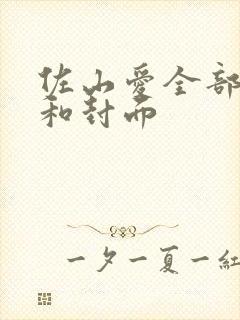 佐山爱全部
和封面
一夕一夏一紅